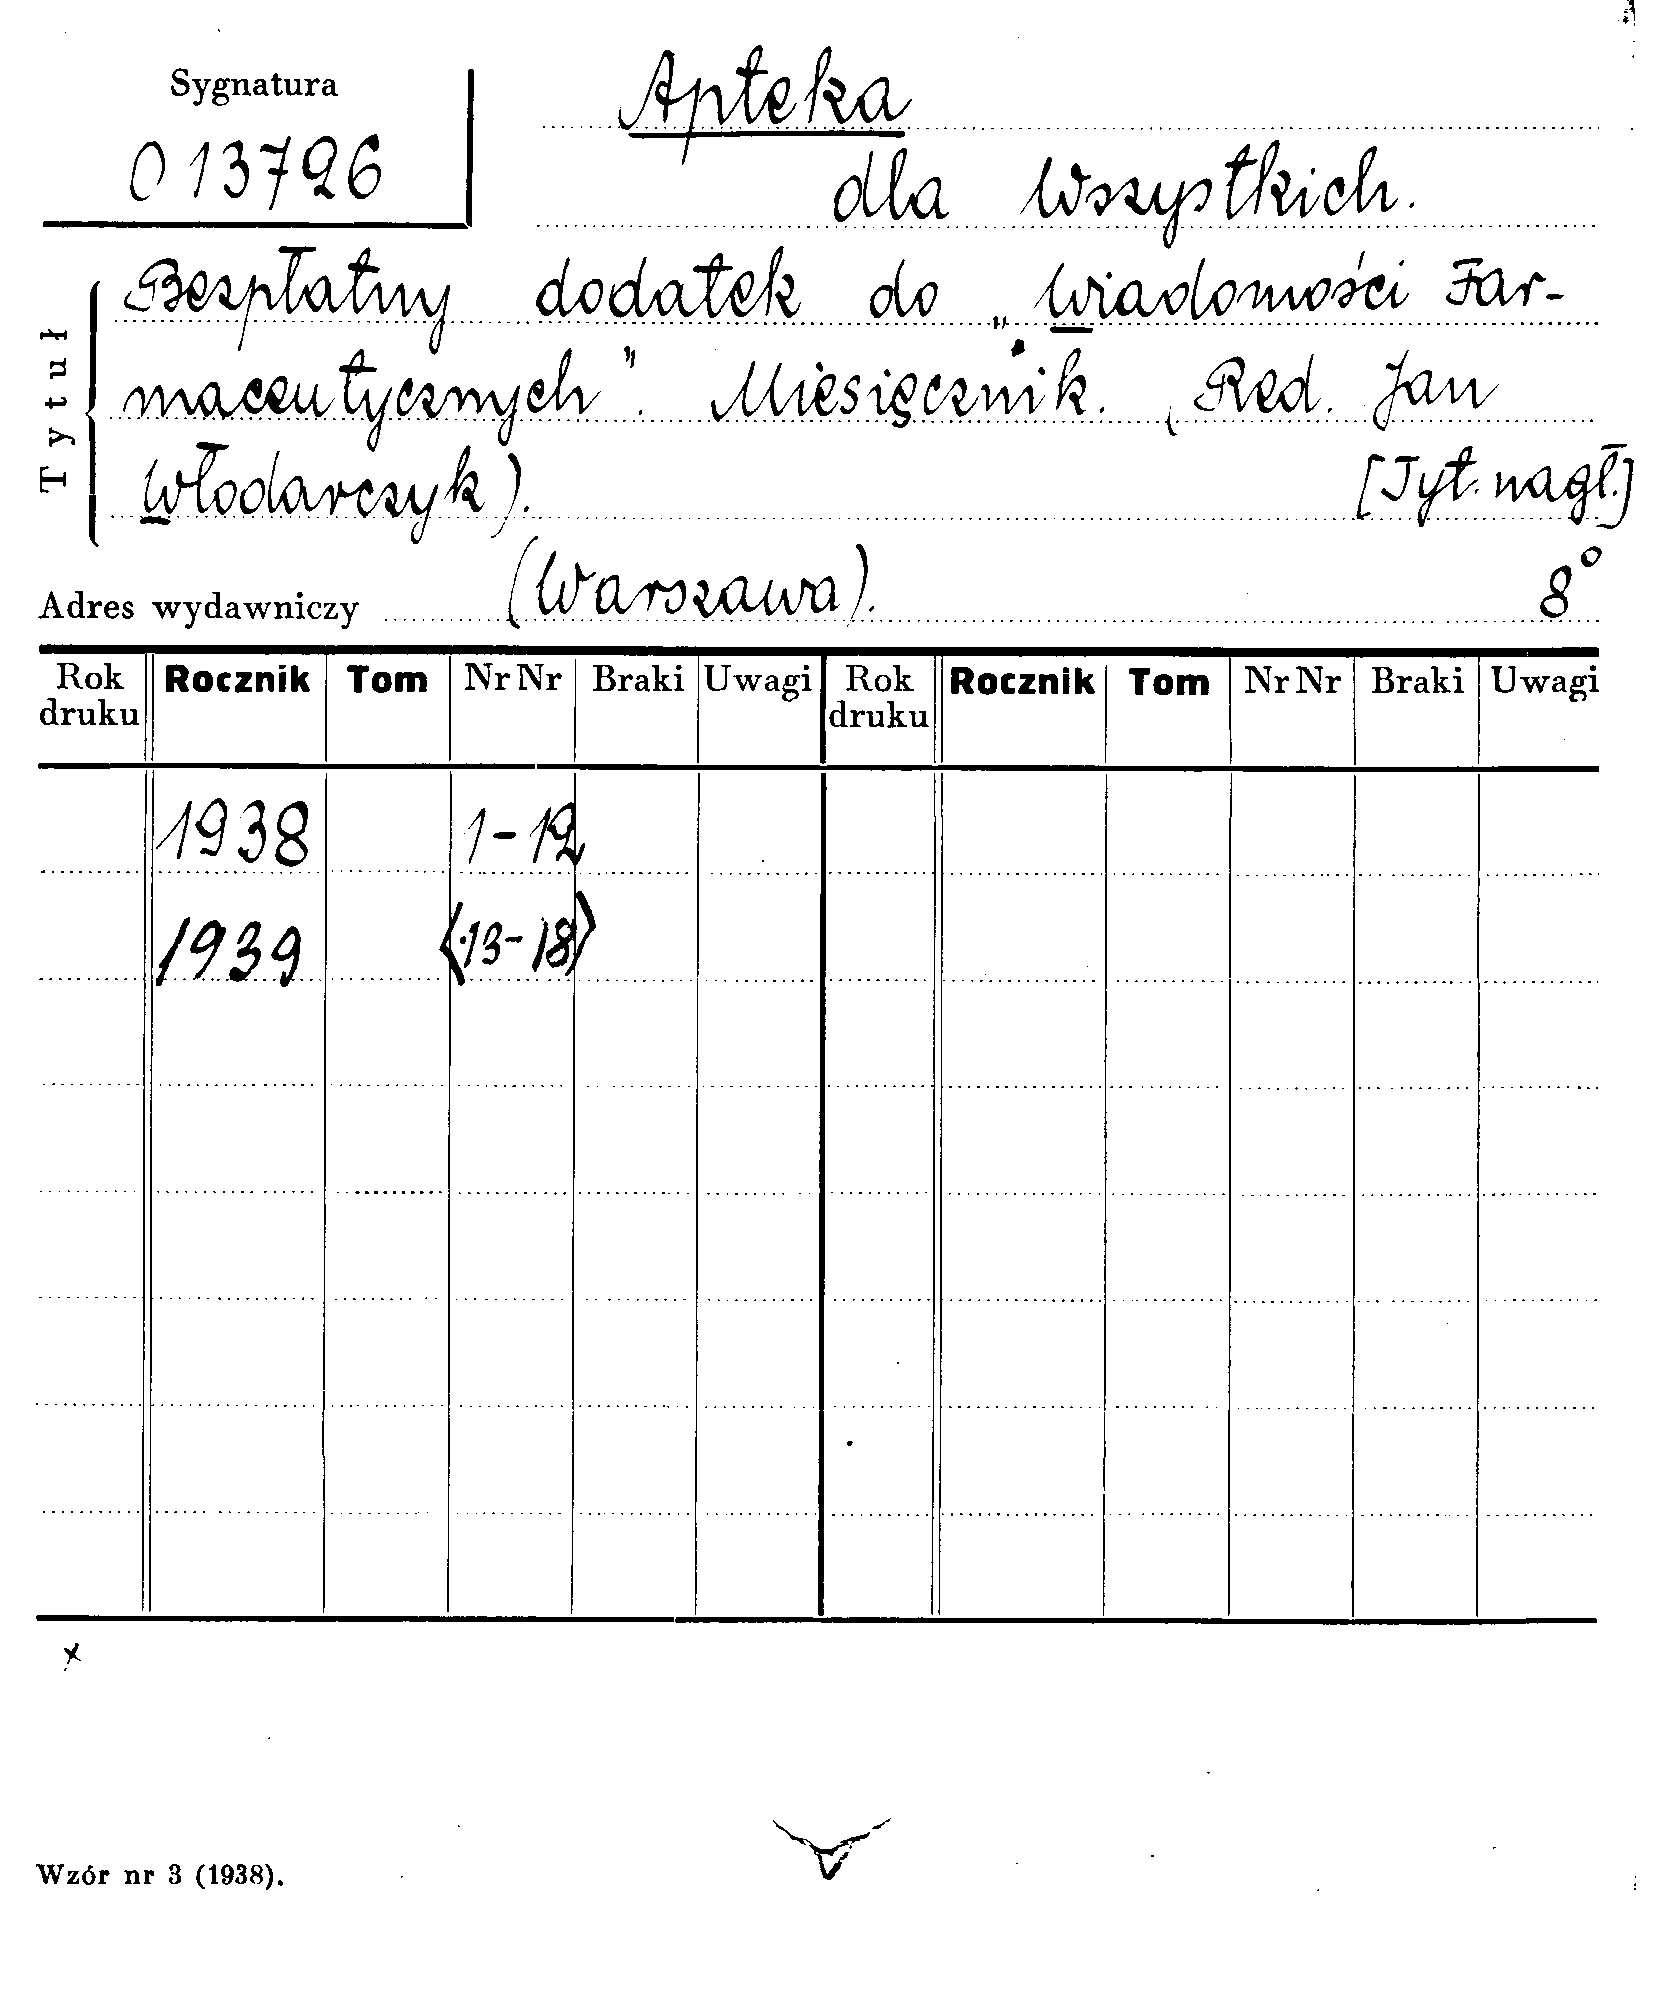 Sygnatura
013726
Apteka
dla Wszystkich.
Tytuł
Bezpłatny dodatek do „Wiadomości Far-
maceutycznych". Miesięcznik. (Red. Jan
Włodarczyk). [Tyt. nagł.]
Adres wydawniczy (Warszawa). 8°
Rok druku Rocznik Tom Nr Nr Braki Uwagi Rok druku Rocznik Tom Nr Nr Braki Uwagi
1938 1-12
1939 <13-18>
x
Wzór nr 3 (1938).